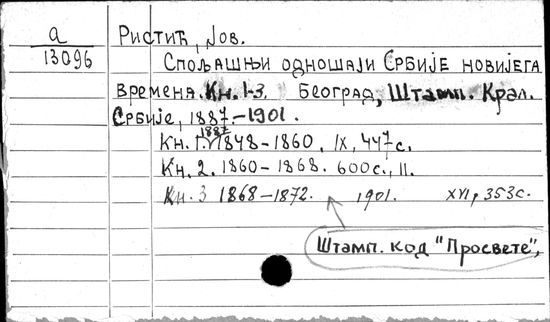 а
13096
Ристић, Јов.
Спољашњи одношаји Србије новијега
времена. Кн. 1-3. Београд, Штамп. Крал.
Србије, 1887.-1901.
Кн. 1. 1887 1848-1860. IX, 447с.
Кн. 2. 1860-1868. 600с., II.
Кн. 3 1868-1872. 1901. XVI, 353с.
Штамп. код "Просвете",